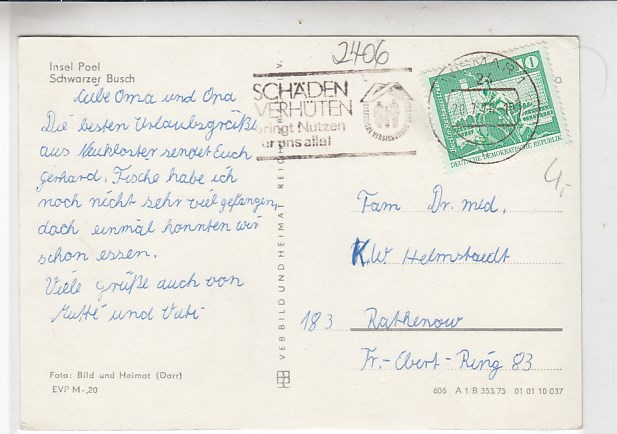 Insel Poel
Schwarzer Busch
Liebe Oma und Opa
Die besten Urlaubsgrüße
aus Neukloster sendet Euch
Gerhard. Fische habe ich
noch nicht sehr viel gefangen,
doch einmal konnten wir
schon essen.
Viele Grüße auch von
Mutti und Vati
Foto: Bild und Heimat (Darr)
EVP M -,20
VEB BILD UND HEIMAT REICHENBACH I. V.
2406
SCHÄDEN
VERHÜTEN
bringt Nutzen
für uns alle!
WISMAR 1
24
10
DEUTSCHE DEMOKRATISCHE REPUBLIK
4,-
Fam Dr. med.
K.W. Helmstaedt
183 Rathenow
Fr.-Ebert-Ring 83
606 A 1/B 353/75 01 01 10 037